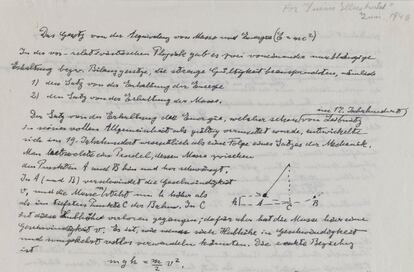 For "Science Illustrated"
Juni 1946
Das Gesetz von der Äquivalenz von Masse und Energie (E = mc²)
In der vor-relativistischen Physik gab es zwei voneinander unabhängige
Erhaltungs- bezw. Bilanzgesetze, die strenge Gültigkeit beanspruchten, nämlich
1) den Satz von der Erhaltung der Energie
2) den Satz von der Erhaltung der Masse.
im 17. Jahrhundert
Der Satz von der Erhaltung der Energie, welcher schon von Leibniz
in seiner vollen Allgemeinheit als gültig vermutet wurde, entwickelte
sich im 19. Jahrhundert wesentlich als eine Folge eines Satzes der Mechanik.
Man betrachte ein Pendel, dessen Masse zwischen
den Punkten A und B hin und her schwingt.
In A (und B) verschwindet die Geschwindigkeit
v, und die Masse steht um h höher als
im tiefsten Punkte C der Bahn. In C
ist diese Hubhöhe verloren gegangen; dafür aber hat die Masse hier eine
Geschwindigkeit v. Es ist, wie wenn sich Hubhöhe in Geschwindigkeit
und umgekehrt restlos verwandeln könnten. Die exakte Beziehung
ist
mgh = m/2 v²,
h
A
C
B